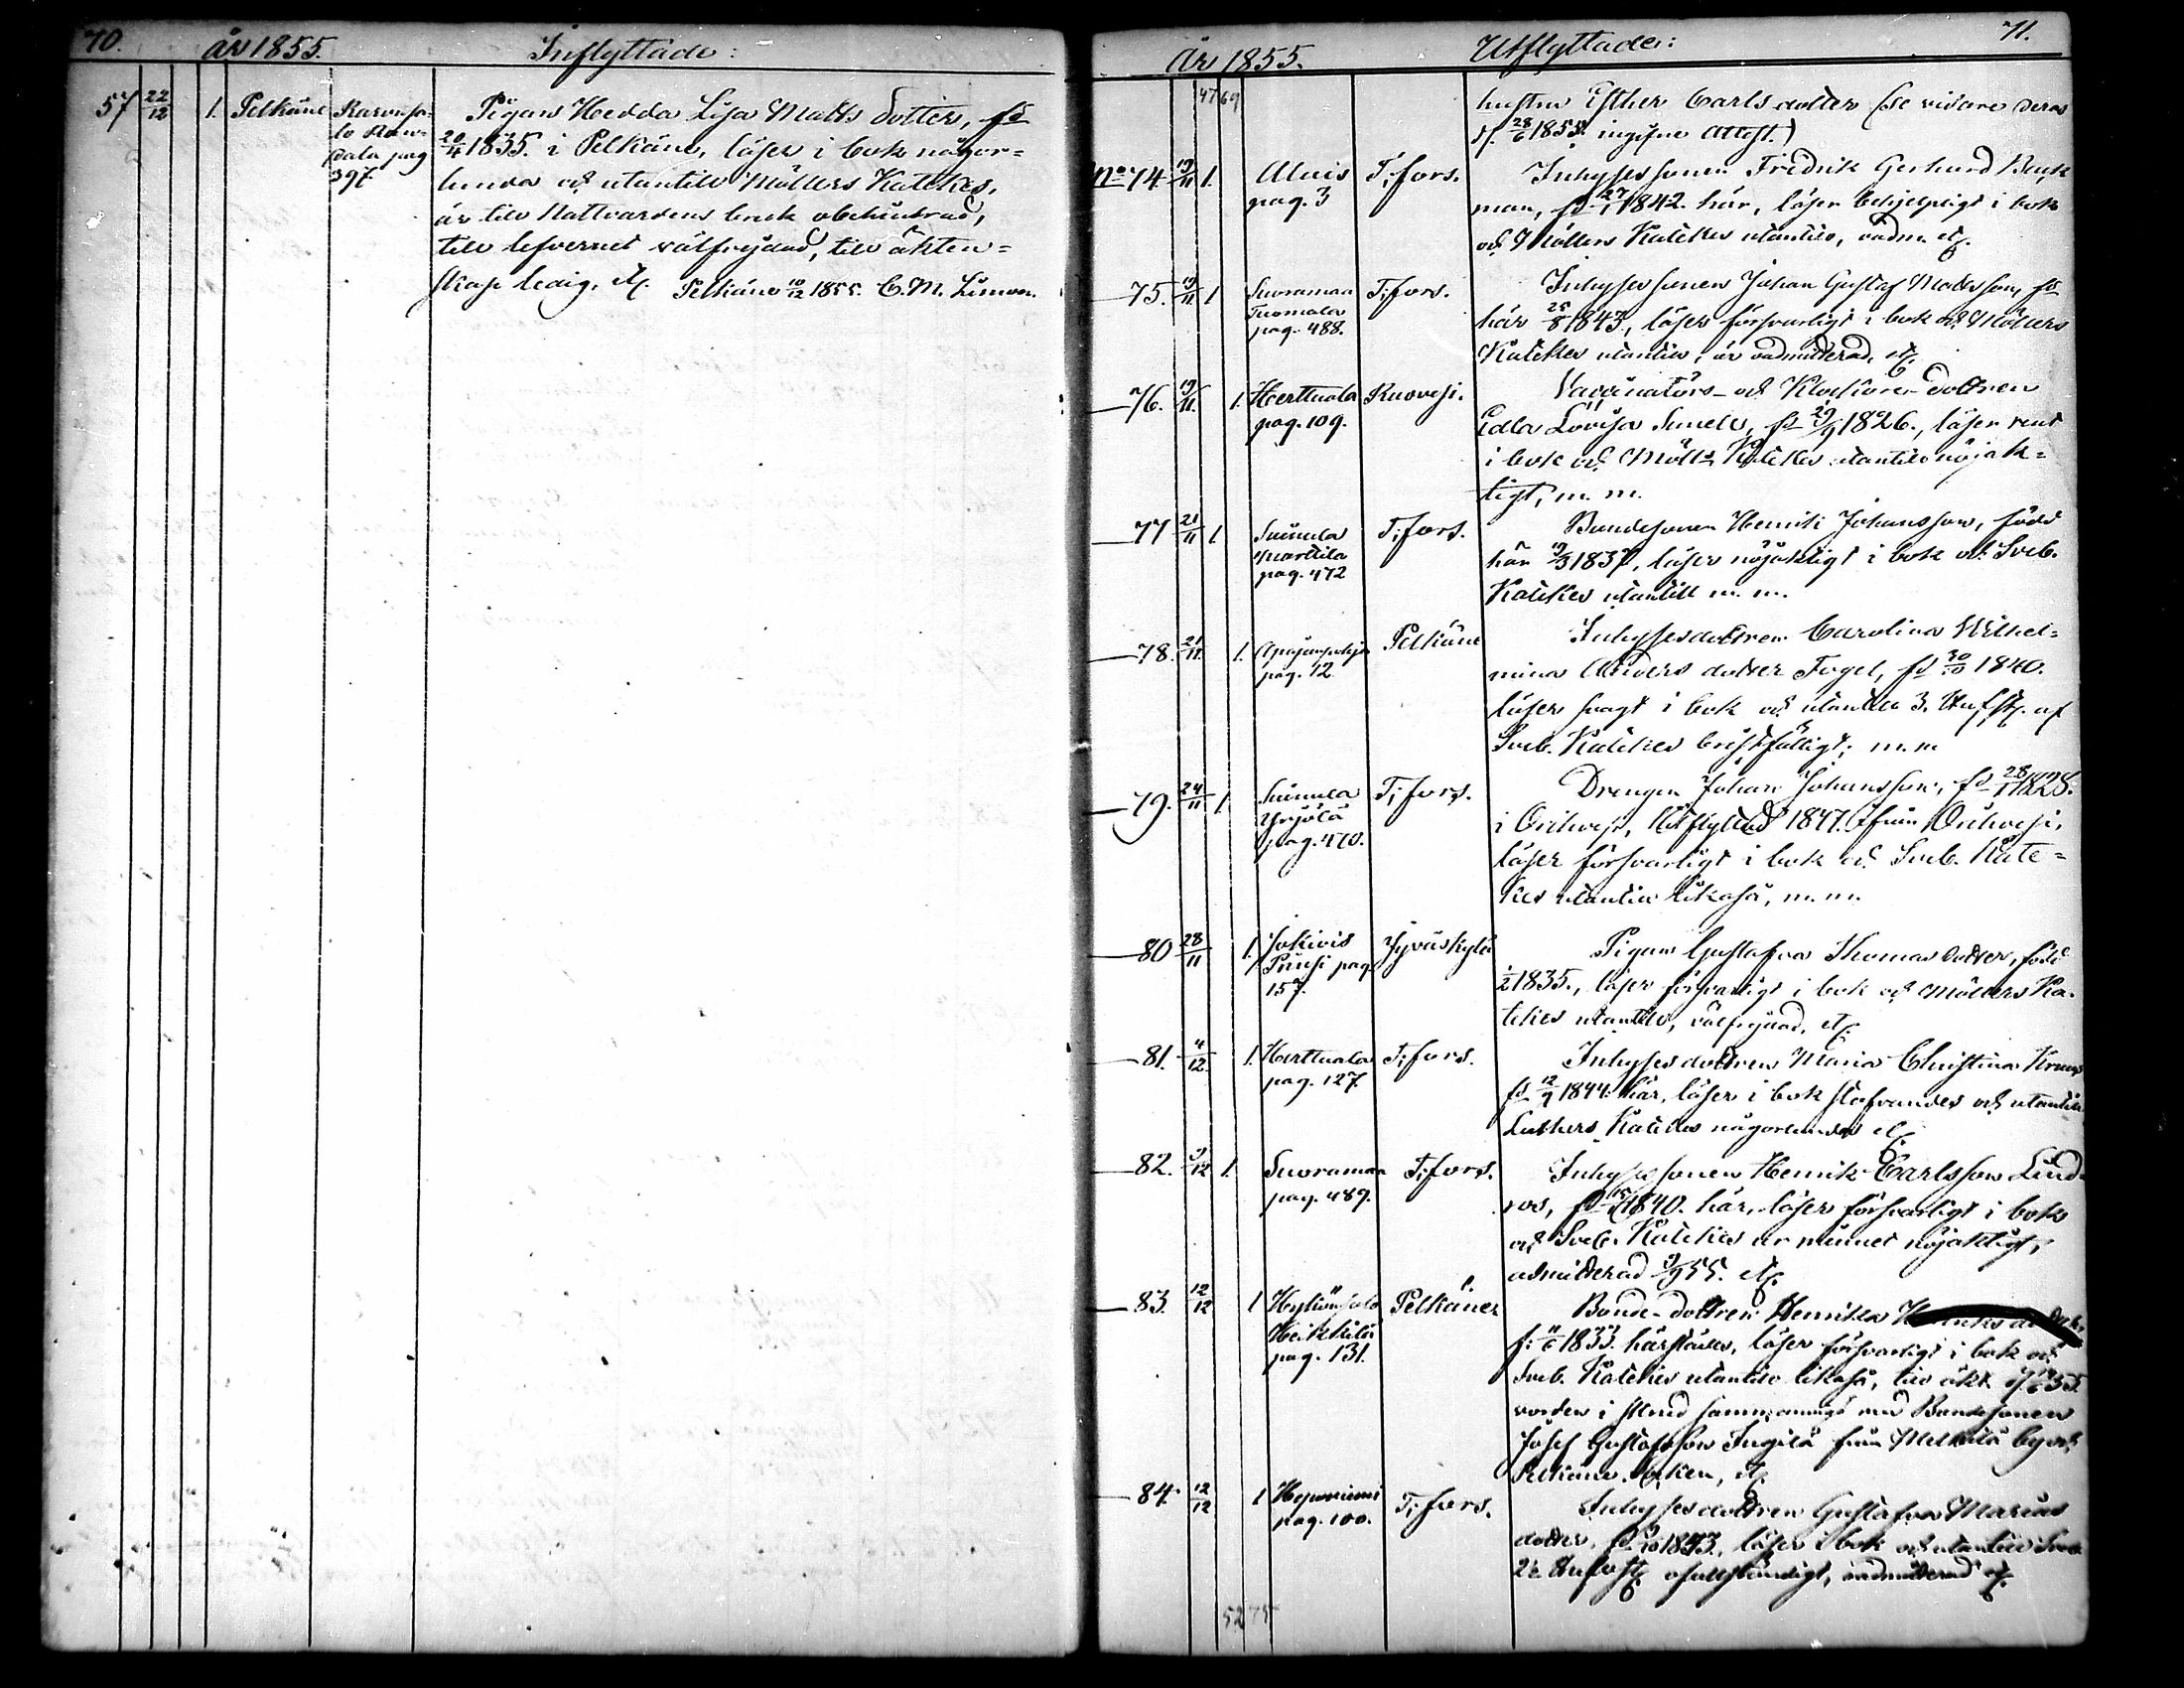 70. år 1855. Inflyttade:
57 22/12 1. Pelkäne pag 397.
Pigan Hedda Lisa Matts dotter, fd
20/4 1835. i Pelkäne, läser i bok någor=
lunda och utantill Möllers Katekes,
är till Nattvardens bruk obehindrad,
till lefvernet välfrejdad, till äkten=
skap ledig, etc. Pelkäne 10/12 1855. C. M.
71.
År 1855. Utflyttade:
47 69
hustru Esther Carls dotter (se vidare deras
d. 28/6 1855. ingifne Attest.)
No 74. 19/11 1. Aluis pag. 3 T:fors. Inhyses sonen Fredrik Gerhard
man, fd 27/1 1842. här, läser behjelpligt i bok
och Möllers Katekes utantill, etc.
75. 19/11 1 Suoramaa Tuomala pag. 488. T:fors. Inhyses sonen Johan Gustaf Matsson, fd
här 25/8 1843, läser försvarligt i bok och Möllers
Katekes utantill, är oadmitterad, etc.
76. 19/11. 1. Herttuala pag. 109. Ruovesi. Vaccinatörs- och Klockare-dottren
Edla Lovisa 29/9 1826., läser rent
i bok och Möll:s Katekes utantill nöjak=
tigt, m. m.
77 21/11 1 Suinula Marttila pag. 472 T:fors. Bondesonen Henrik Johansson, född
här 19/3 1837, läser nöjaktligt i bok och Sveb.
Katekes utantill m. m.
78. 21/11. 1. pag. 12 Pelkäne Inhysesdottren Carolina Wilhel=
mina Anders dotter Fogel, fd 30/10 1840.
läser svagt i bok och utantill 3. Hufst. af
Sveb. Katekes bristfälligt, m. m
79. 24/11 1. Suinula Yrjölä pag. 470. T:fors. Drengen Johan Johansson, fd 28/1 1828.
i Orihvesi, Utflyttad 1847. från Orihvesi,
läser försvarligt i bok och Sveb. Kate=
kes utantill likaså, m. m.
80 28/11 1. Jokiois pag. 157. Jyväskylä Pigan Gustafva Thomas dotter, född
1/2 1835., läser försvarligt i bok och Möllers Ka-
tekes utantill, välfrejdad, etc.
81. 4/12. 1. Herttuala pag. 127. T:fors. Inhyses dottren Maria Christina
fd 12/9 1844. här, läser i bok stafvandes och utantill
Luthers Katekes någorlunda etc.
82. 9/12 1. Suoramaa pag. 489. T:fors. Inhyses sonen Henrik Carlsson Lind-
ros, fd 1840. här, läser försvarligt i bok
och Sveb. Katekes ur minnet nöjaktigt,
admitterad 55. etc.
83. 12/12 1 Heikkilä pag. 131. Pelkäne Bonde-dottren Henrika
f: 11/6 1833. härstädes, läser försvarligt i bok och
Sveb. Katekes utantill likaså, till äkt.
vorden i stånd sammanvigd med Bondesonen
Josef Gustafsson från by och
Pelkäne Socken, etc.
84. 12/12 1 pag. 100. T:fors. Inhyses dottren Gustafva Marias
dotter, läser i bok och utantill Sveb.
2:e Hufvst. ofullständigt, oadmitterad etc.
52 75